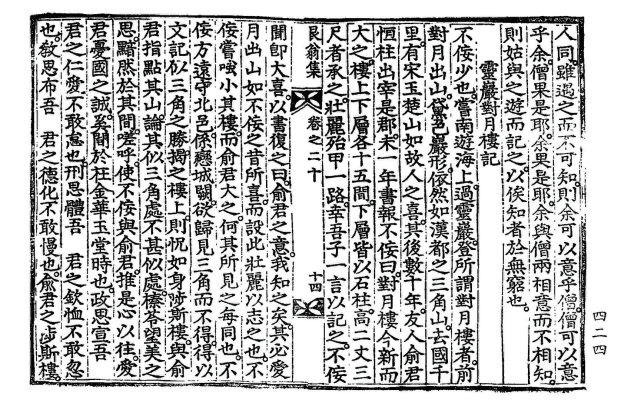 人同。雖遇之而不可知。則余可以意乎僧。僧可以意
乎余。僧果是耶。余果是耶。余與僧兩相意而不相知。
則姑與之遊而記之。以俟知者於無窮也。
靈巖對月樓記
不侫少也。嘗南遊海上。過靈巖。登所謂對月樓者。前
對月出山。黛色巖形。依然如漢都之三角山。去國千
里。有宋玉楚山如故人之喜。其後數十年。友人兪君
恒柱出宰是郡。未一年。書報不侫曰。對月樓今新而
大之。樓上下層各十五間。下層皆以石柱。高二丈三
尺者承之。壯麗殆甲一路。幸吾子一言以記之。不侫
艮翁集 卷之二十 十四
聞卽大喜。以書復之曰。兪君之意。我知之矣。其必愛
月出山如不侫之昔所喜。而設此壯麗以志之也。不
侫嘗嗤小其樓。而兪君大之。何其所見之每同也。不
侫方遠守北邑。係戀城闕。欲歸見三角而不得。得以
文記似三角之勝。揭之樓上。則怳如身陟斯樓。與兪
君指點其山。論其似三角處不甚似處。榛苓望美之
思。黯然於其間。嗟呼。使不侫與兪君推是心以往。愛
君憂國之誠。奚間於在金華玉堂時也。政思宣吾
君之仁愛不敢怠也。刑思體吾 君之欽恤不敢忽
也。敎思布吾 君之德化不敢慢也。兪君之步斯樓。
四二四